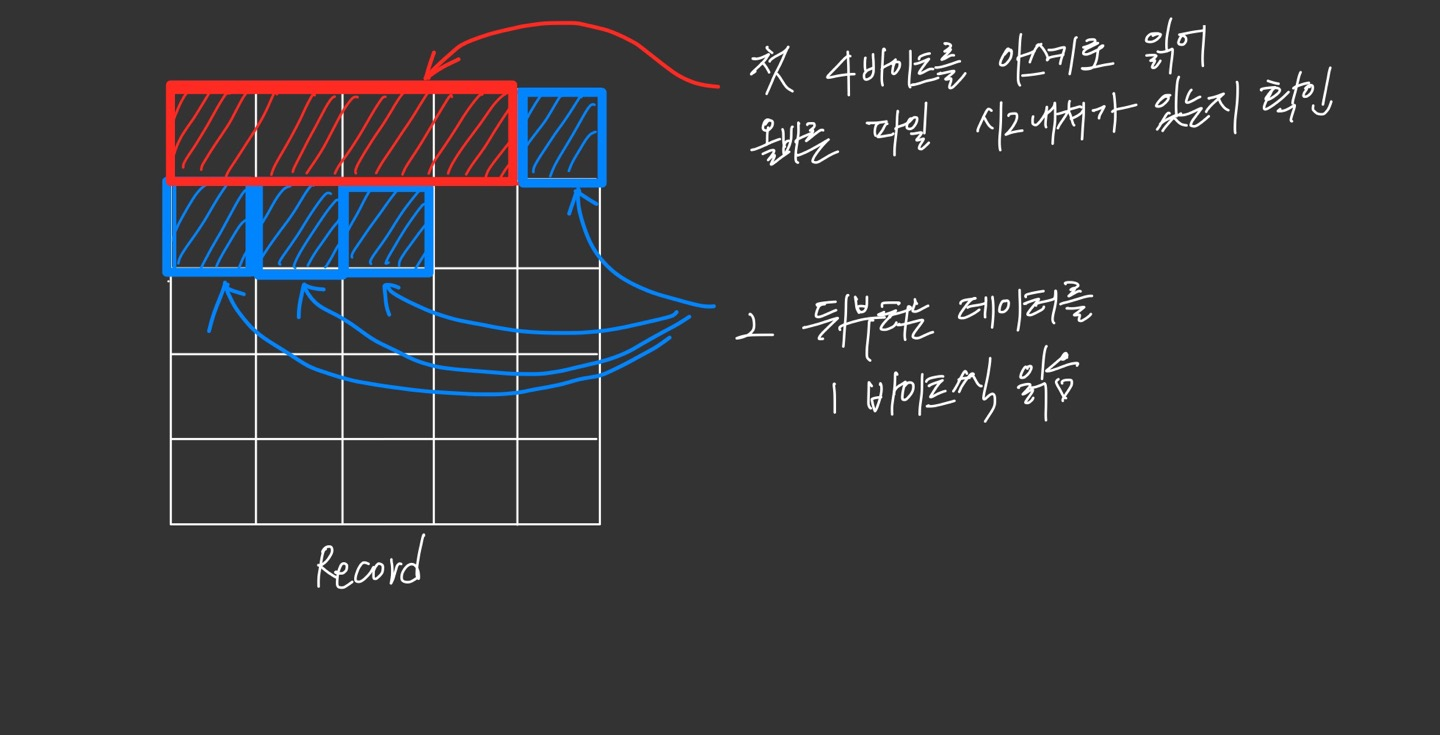 첫 4바이트를 아스키로 읽어
올바른 파일 시그내처가 있는지 확인
그 뒤부터는 데이터를
1 바이트씩 읽음
Record